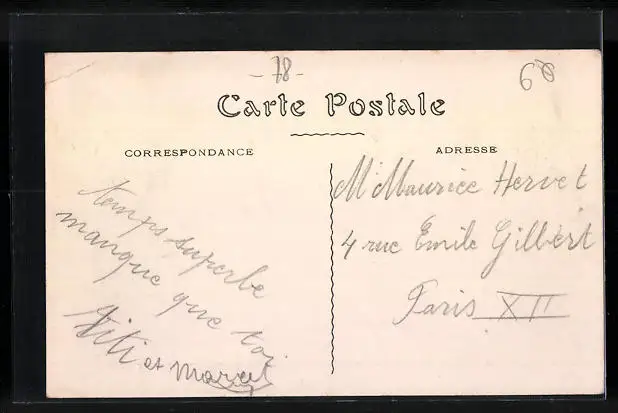 -78-
60
Carte Postale
CORRESPONDANCE
ADRESSE
temps superbe
manque que toi
Titi et Marcel
Mr Maurice Hervet
4 rue Emile Gilbert
Paris XII